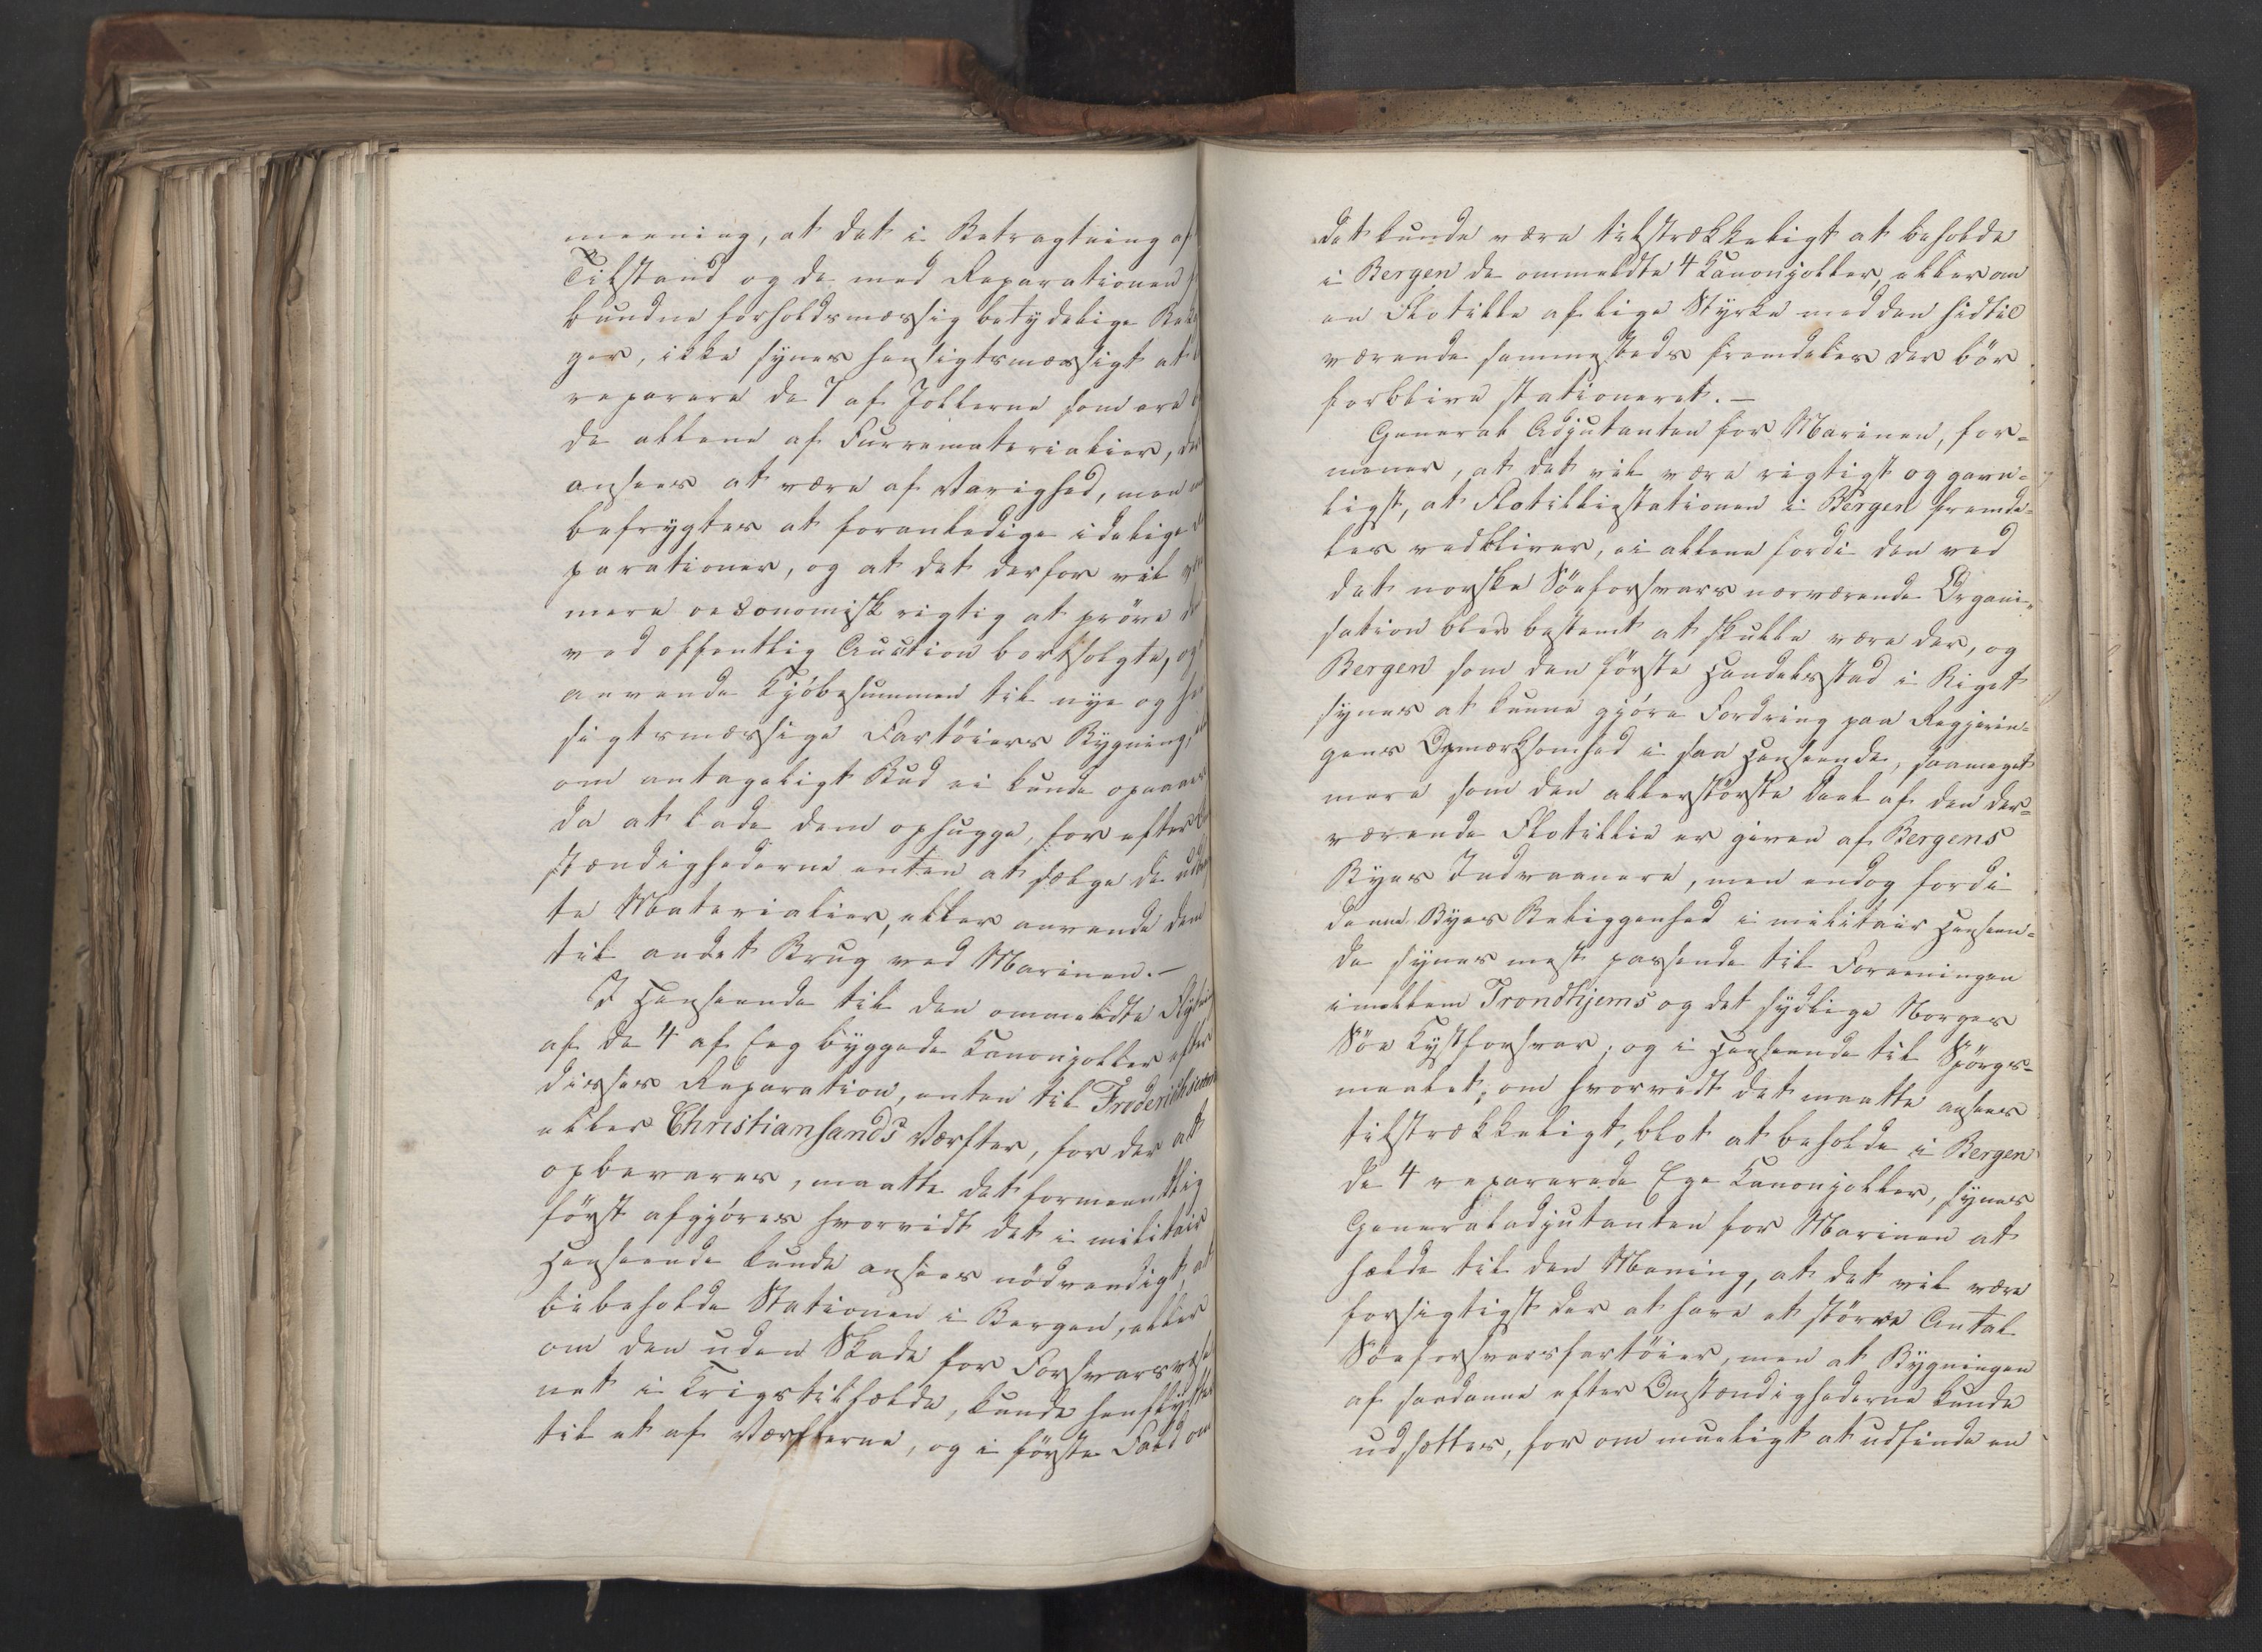 meening, at det i Betragtning af
Tilstand og de med Reparationen
bundne forholdsmæssig betydelige
ger, ikke synes hensigtsmæssigt at
reparere de 7 af Jollerne som ere
de allene af Furrematerialier,
ansees at være af Varighed, men
befrygtes at foranledige idelige
parationer, og at det derfor vil
mere oeconomisk rigtig at prøve
ved offentlig Auction bortsolgte, og
anvende Kjöbesummen til nye og
sigtsmæssige Fartöiers Bygning,
om antageligt Bud ei kunde opnaaes
da at lade dem ophugge, for efter
stændighederne enten at sælge de
te Materialier, eller anvende dem
til andet Brug ved Marinen.—
I Henseende til den ommeldte
af de 4 af Eeg byggede Kanonjoller efter
disses Reparation, enten til
eller Christiansands Værfter, for der at
opbevares, maatte det formeentlig
först afgjöres hvorvidt det i militair
Henseende kunde ansees nödvendigt, at
bibeholde Stationen i Bergen, eller
om den uden Skade for Forsvarsvæse
net i Krigstilfælde, kunde henflyttes
til et af Værfterne, og i förste Fald om
det kunde være tilstrækkeligt at beholde
i Bergen de ommeldte 4 Kanonjoller, eller om
en Flotille af lige Styrke med den hidtil
værende sammesteds fremdeles der bör
forblive stationeret.—
General Adjutanten for Marinen, for=
mener, at det vil være rigtigst og gavn=
ligst, at Flotilliestationen i Bergen fremde=
les vedbliver, ei allene fordi den ved
det norske Söeforsvars nærværende Organi=
sation blev bestemt at skulle være der, og
Bergen som den förste Handelsstad i Riget
synes at kunne gjöre Fordring paa Regjerin=
gens Opmærksomhed i saa Henseende, saameget
mere som den allerstörste Deel af den der=
værende Flotillie er given af Bergens
Byes Indvaanere, men endog fordi
denne Byes Beliggenhed i militair Henseen=
de synes mest passende til Foreeningen
imellem Trondhjems og det sydlige Norges
Söe Kystforsvar; og i Henseende til Spörgs=
maalet, om hvorvidt det maatte ansees
tilstrækkeligt, blot at beholde i Bergen
de 4 reparerede Ege Kanonjoller, synes
Generaladjutanten for Marinen at
helde til den Mening, at det vil være
forsigtigst der at have et större Antal
Söeforsvarsfartöier, men at Bygningen
af saadanne efter Omstændighederne kunde
udsættes, for om mueligt at udfinde en